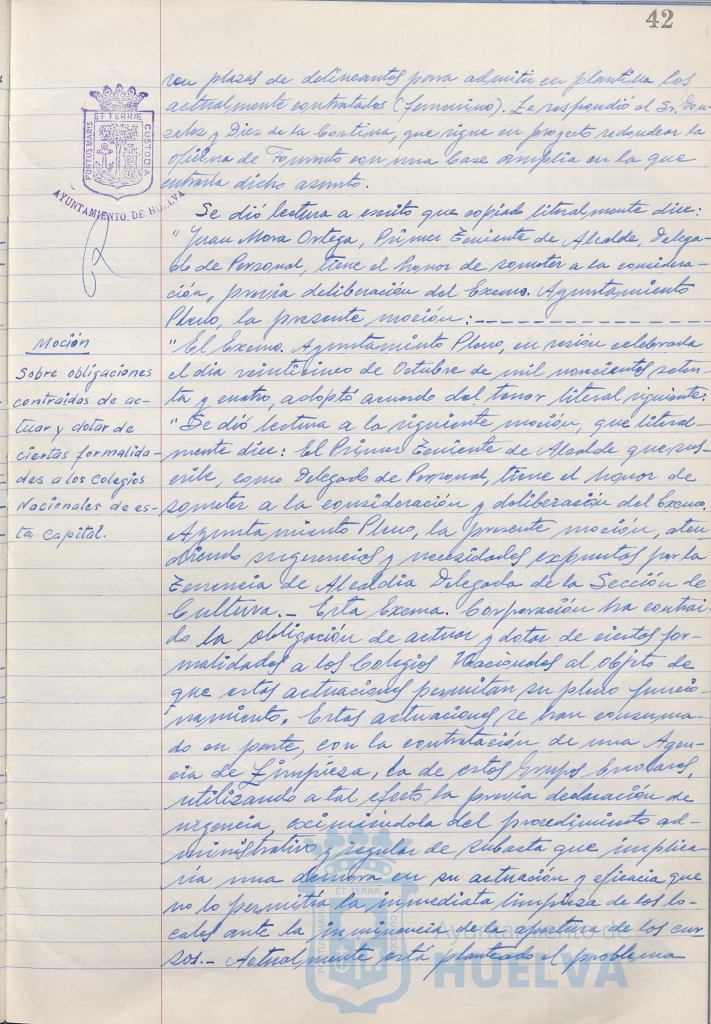 42
ren plazas de delineantes para admitir en plantilla los
actualmente contratados (femenino). Le respondió el Sr. Gon-
zalez y Diez de la Cortina, que sigue en proyecto redondear la
oficina de Fomento con una base amplia en la que
entraría dicho asunto.
PORTUS MARIS
ET TERRÆ
CUSTODIA
AYUNTAMIENTO DE HUELVA
Se dió lectura a escrito que copiado literalmente dice:
"Juan Mora Ortega, Primer Teniente de Alcalde, Delega-
do de Personal, tiene el honor de someter a la considera-
ción, previa deliberación del Excmo. Ayuntamiento
Pleno, la presente moción:
Moción
Sobre obligaciones
contraidas de ac-
tuar y dotar de
ciertas formalida-
des a los Colegios
Nacionales de es-
ta Capital.
"El Excmo. Ayuntamiento Pleno, en sesión celebrada
el día veinticinco de Octubre de mil novecientos seten-
ta y cuatro, adoptó acuerdo del tenor literal siguiente:
"Se dió lectura a la siguiente moción, que literal-
mente dice: El Primer Teniente de Alcalde que sus-
cribe, como Delegado de Personal, tiene el honor de
someter a la consideración y deliberación del Excmo.
Ayuntamiento Pleno, la presente moción, aten-
diendo sugerencias y necesidades expuestas por la
Tenencia de Alcaldía Delegada de la Sección de
Cultura.- Esta Excma. Corporación ha contrai-
do la obligación de actuar y dotar de ciertas for-
malidades a los Colegios Nacionales al objeto de
que estas actuaciones permitan su pleno funcio-
namiento. Estas actuaciones se han consuma-
do en parte, con la contratación de una Agen-
cia de Limpieza, la de estos Grupos Escolares,
utilizando a tal efecto la previa declaración de
urgencia, eximiéndola del procedimiento ad-
ministrativo y regular de subasta que implica-
ría una demora en su actuación y eficacia que
no lo permitía la inmediata limpieza de los lo-
cales ante la inminencia de la apertura de los cur-
sos.- Actualmente está planteado el problema
PORTUS MARIS
ET TERRÆ
CUSTODIA
Ayuntamiento de
HUELVA